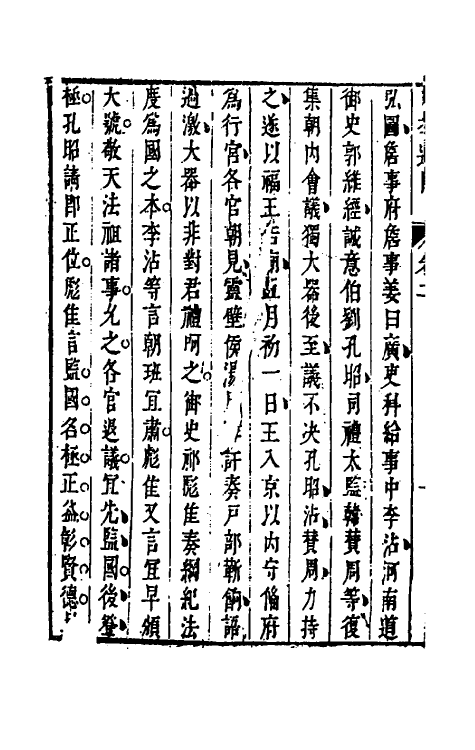 弘圖詹事府詹事姜曰廣吏科給事中李沾河南道
御史郭維經誠意伯劉孔昭司禮太監韓贊周等復
集朝內會議獨大器後至議不決孔昭沾贊周力持
之遂以福王告廟五月初一日王入京以內守備府
爲行宮各官朝見靈壁侯湯訐奏戸部靳餉語
過激大器以非對君禮呵之御史祁彪佳奏綱紀法
度爲國之本李沾等言朝班宜肅彪佳又言宜早頒
大號敬天法祖諸事允之各官退議宜先監國後登
極孔昭請即正位彪佳言監國名極正益彰賢德
卷二